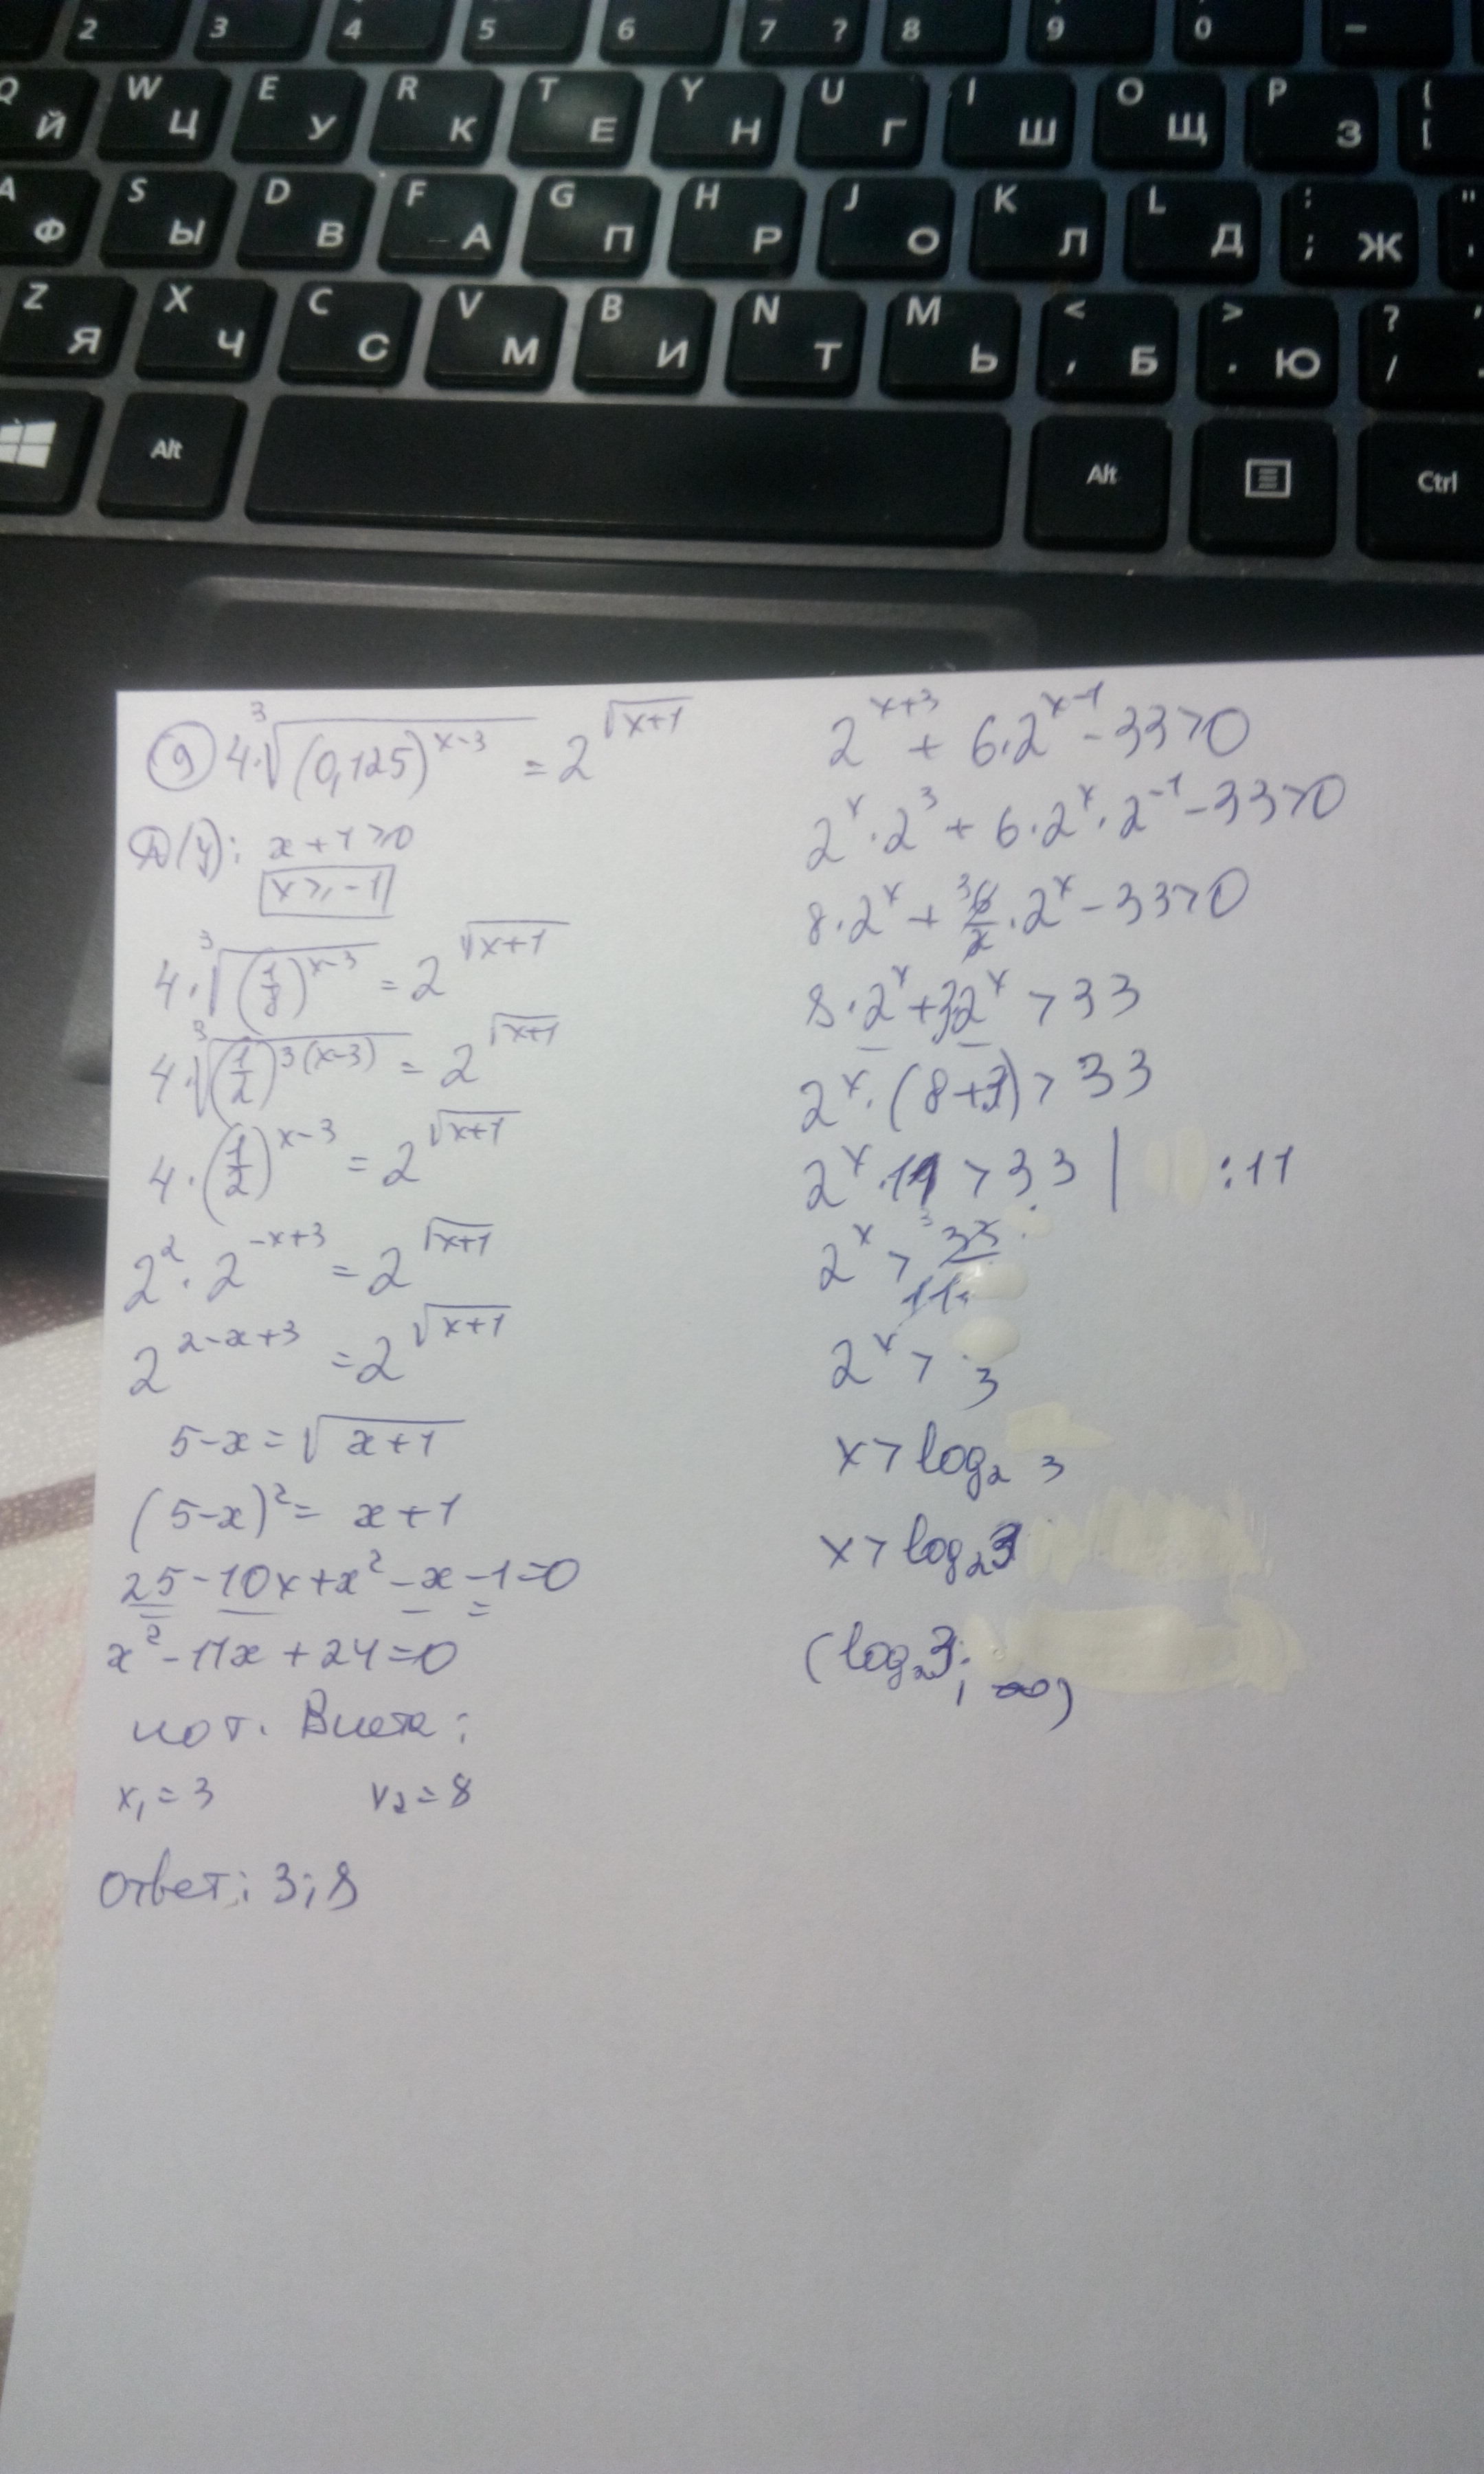 2 3 4 5 6 7 ? 8 9 0 –
Q Й W Ц E У R К T Е Y Н U Г I Ш O Щ P З { [
A Ф S Ы D В F А G П H Р J О K Л L Д : ; Ж "
Z Я X Ч C С V М B И N Т M Ь < , Б > . Ю ? /
Alt Alt Ctrl
9 4·∛(0,125)^(x-3) = 2^√(x+1)
Д(У): x+1≥0
x≥-1
4·∛(1/8)^(x-3) = 2^√(x+1)
4·∛(1/2)^(3(x-3)) = 2^√(x+1)
4·(1/2)^(x-3) = 2^√(x+1)
2^2·2^(-x+3) = 2^√(x+1)
2^(2-x+3) = 2^√(x+1)
5-x=√(x+1)
(5-x)²= x+1
25-10x+x²-x-1=0
x²-11x+24=0
по т. Виета:
x₁=3 x₂=8
Ответ: 3; 8
2^(x+3) + 6·2^(x-1) - 33>0
2^x·2^3 + 6·2^x·2^(-1) - 33>0
8·2^x + 3 6/2·2^x - 33>0
8·2^x+32^x > 33
2^x·(8+3) > 33
2^x·11 > 33 | :11
2^x > 3 33/11
2^x > 3
x> log₂ 3
x> log₂3
(log₂3; ∞)